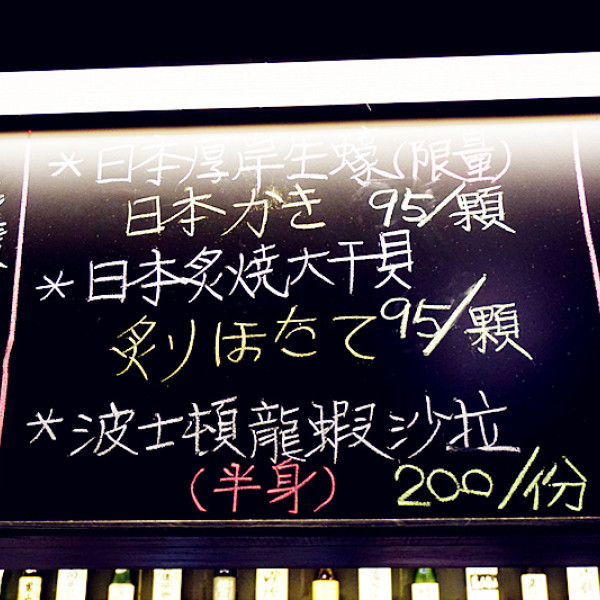 *日本厚岸生蠔(限量)
日本かき 95/顆
*日本炙燒大干貝
炙りほたて 95/顆
*波士頓龍蝦沙拉
(半身) 200/份